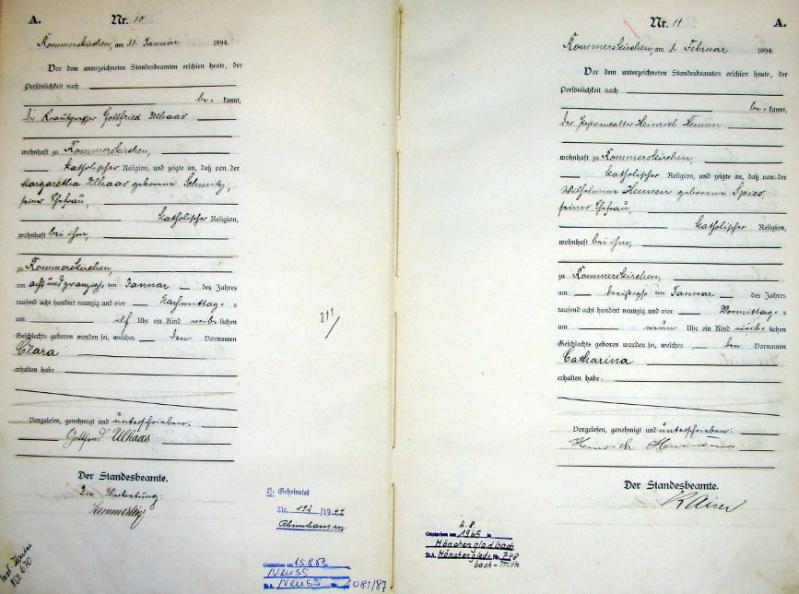 A. Nr. 10
Rommerskirchen, am 31. Januar 1894.
Vor dem unterzeichneten Standesbeamten erschien heute, der
Persönlichkeit nach
be- kannt,
der Gottfried Ulhaas
wohnhaft zu Rommerskirchen,
katholischer Religion, und zeigte an, daß von der
Margaretha Ulhaas geborene Schmitz,
seiner Ehefrau,
katholischer Religion,
wohnhaft bei ihm,
zu Rommerskirchen,
am acht und zwanzigsten Januar des Jahres
tausend acht hundert neunzig und vier Nachmittags
um elf Uhr ein Kind weiblichen
Geschlechts geboren worden sei, welches den Vornamen
Clara
erhalten habe
Vorgelesen, genehmigt und unterschrieben:
Gottfried Ulhaas
Der Standesbeamte.
In Vertretung:
211/
Geheiratet
Nr. 192/1927
Gestorben am 15.8.62
Neuss
StA. Neuss Nr. 1081/87
Nr. 11 A.
Rommerskirchen, am 1. Februar 1894.
Vor dem unterzeichneten Standesbeamten erschien heute, der
Persönlichkeit nach
be- kannt,
der Heinrich Hennen
wohnhaft zu Rommerskirchen,
katholischer Religion, und zeigte an, daß von der
Wilhelmine Hennen geborene Spies,
seiner Ehefrau,
katholischer Religion,
wohnhaft bei ihm,
zu Rommerskirchen,
am dreißigsten Januar des Jahres
tausend acht hundert neunzig und vier Vormittags
um neun Uhr ein Kind weiblichen
Geschlechts geboren worden sei, welches den Vornamen
Catharina
erhalten habe
Vorgelesen, genehmigt und unterschrieben:
Heinrich Hennen
Der Standesbeamte.
Gestorben am 2.8.1965 in
Mönchengladbach
StA. Mönchenglad- Nr. 748
bach-Mitte